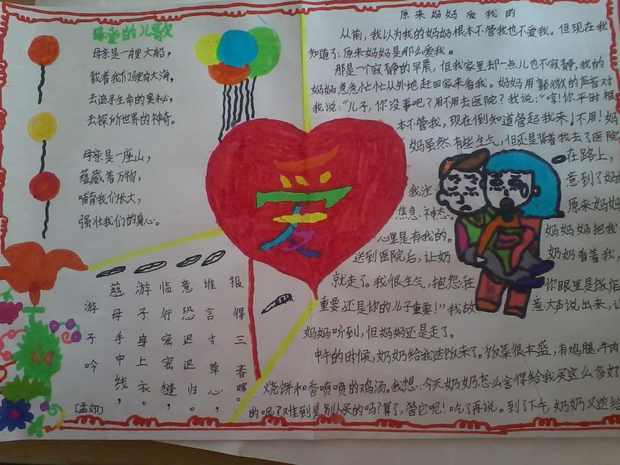 母亲的儿歌
母亲是一艘大船，
载着我们驶向大海，
去追寻生命的奥秘，
去探索世界的神奇。
母亲是一座山，
蕴藏着万物，
哺育我们长大，
强壮我们的身心。
游子吟
[孟郊]
慈母手中线，
游子身上衣。
临行密密缝，
意恐迟迟归。
谁言寸草心，
报得三春晖。
爱
原来妈妈爱我的
从前，我以为我的妈妈根本不管我也不爱我。但现在我
知道了：原来妈妈是那么爱我。
那是一个寂静的早晨，但我家里却一点儿也不寂静，我的
妈妈急急忙忙从外地赶回家来看我。妈妈用颤微的声音对
我说：“儿子，你没事吧？用不用去医院？我说：“哼！你平时根
本不管我，现在倒知道管起我来了，不用！妈
妈虽然有些生气，但还是背着我去了医院
在路上，
我注
意到了妈
焦急
原来妈妈
心里是有我的。
妈妈把我
送到医院后，让奶
奶看着我，
就走了。我很生气，抱怨
你眼里是钱
重要还是你的儿子重要！”我故
意大声说出来，让
妈妈听到，但妈妈还是走了。
中午的时候，奶奶给我送饭来了。饭菜很丰盛，有鸡腿、牛肉
烧饼和香喷喷的鸡汤。我想：今天奶奶怎么舍得给我买这么多好
的呢？难到是别人买的吗？算了，管它呢！吃了再说。到了下午，奶奶又送给